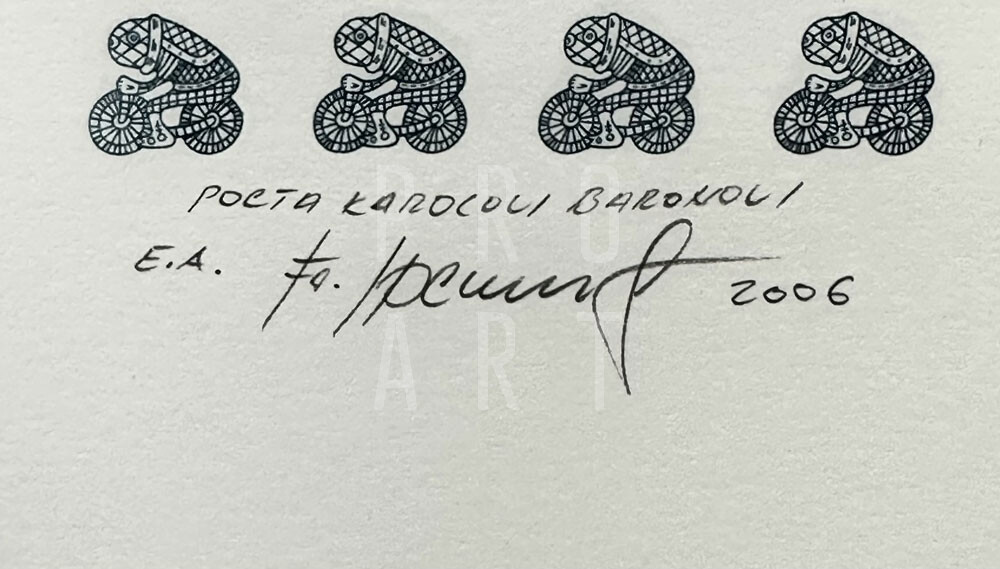 POCTA KAROLOVI BARONOVI
E.A. 2006
PRO
ART